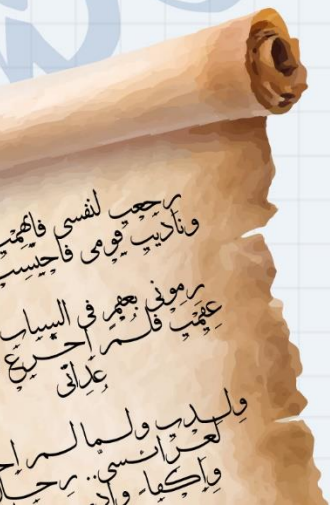 رجعت لنفسي فاتهمت
وناديت قومي فاحتسبت
رموني بعقم في الشباب
عقمت فلم اجزع
عداتي
ولدت ولما لم اج
لعرائسي.. رجال
واكفاء واد